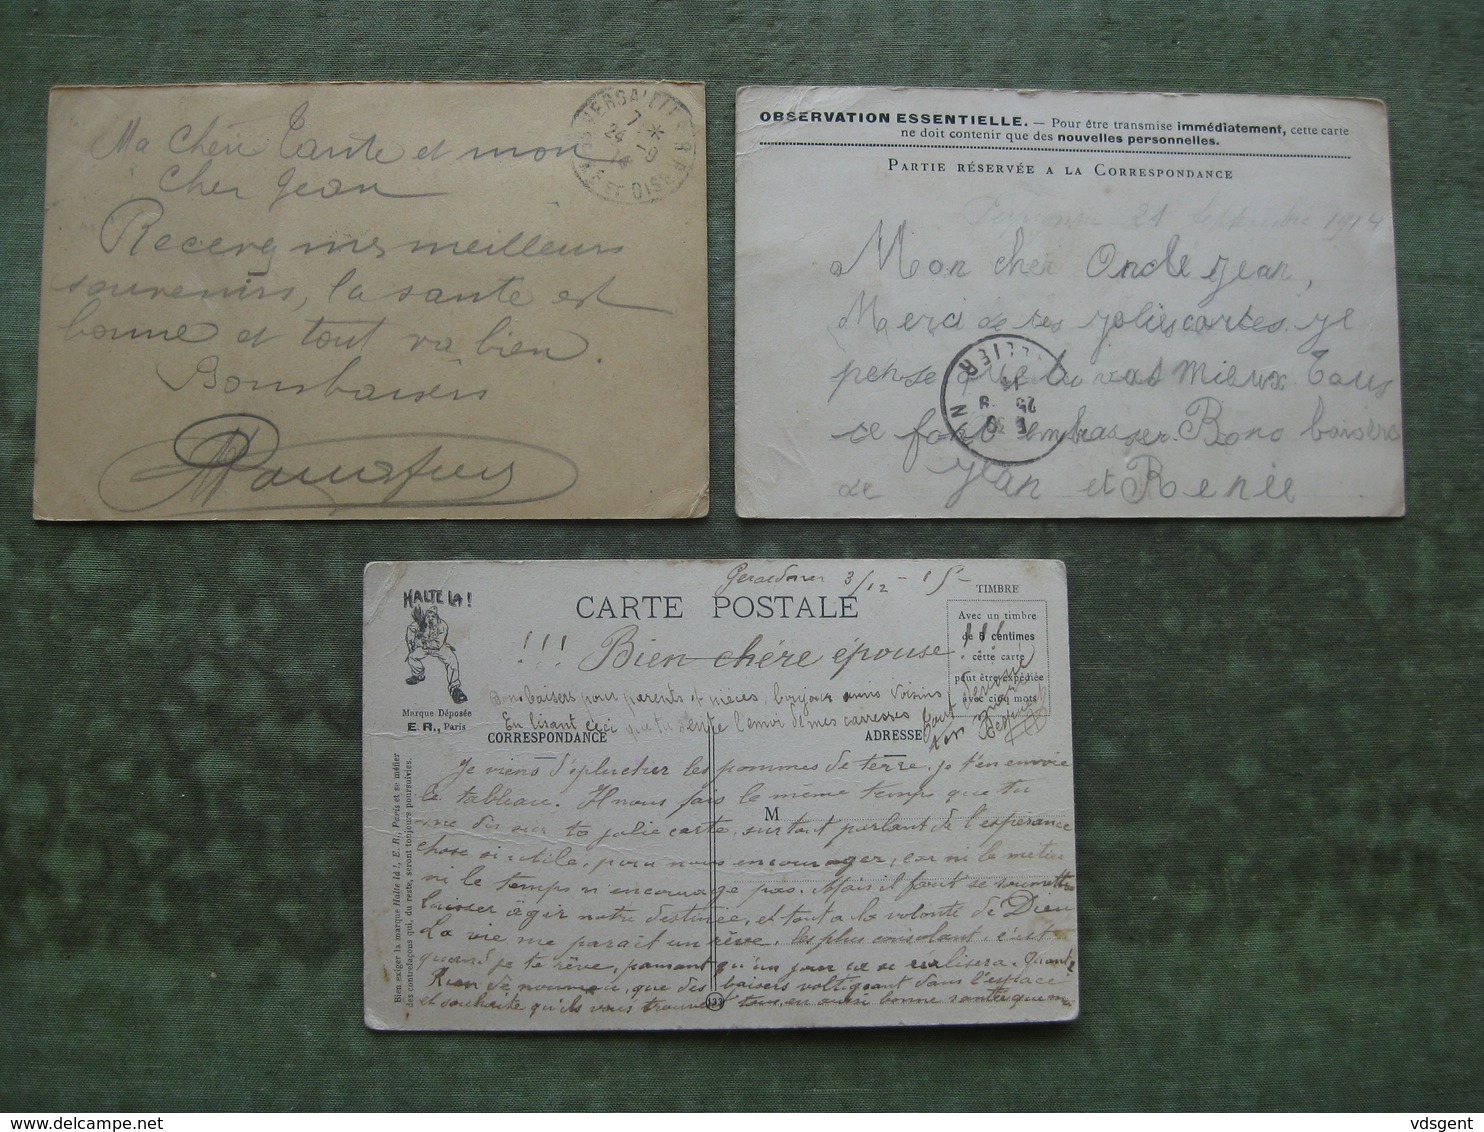 Ma chère Tante et mon
cher Jean
Recevez mes meilleurs
souvenirs, la santé est
bonne et tout va bien.
Bons baisers
VERSAILLES R.P.
7 *
24 - 9
14
ET OISE
OBSERVATION ESSENTIELLE. — Pour être transmise immédiatement, cette carte
ne doit contenir que des nouvelles personnelles.
PARTIE RÉSERVÉE A LA CORRESPONDANCE
21 Septembre 1914
Mon cher Oncle Jean,
Merci de tes jolies cartes. Je
pense que tu vas mieux Tous
se font embrasser. Bons baisers
de Jean et Renée
HALTE LA!
Marque Déposée
E. R., Paris
Gerardmer 3/12 - 15
CARTE POSTALE
TIMBRE
Avec un timbre
de 5 centimes
cette carte
peut être expédiée
avec cinq mots
!!! Bien chère épouse !!!
Bons baisers pour parents et nièces, bonjour amis voisins
En lisant ceci que tu sente l'émoi de mes caresses
CORRESPONDANCE
ADRESSE
M
Je viens d'éplucher les pommes de terre, je t'en envoie
le tableau. Il nous faut le même temps que tu
me dis sur ta jolie carte, surtout parlant de l'espérance
chose si utile, pour nous encourager, car ni le métier
ni le temps n'encourage pas. Mais il faut se soumettre
laisser agir notre destinée, et tout a la volonté de Dieu
La vie me parait un rêve, les plus consolant c'est
quand je te rêve, pensant qu'un jour ce se réalisera.
Rien de nouveau, que des baisers voltigeant dans l'espace
et souhaite qu'ils vous trouve tous en aussi bonne santé que moi
133
Bien exiger la marque Halte là !, E. R., Paris et se méfier
des contrefaçons qui, du reste, seront toujours poursuivies.
delcampe.net
vdsgent